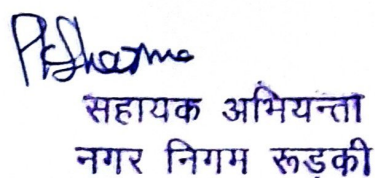 PKSharma
सहायक अभियन्ता
नगर निगम रूड़की